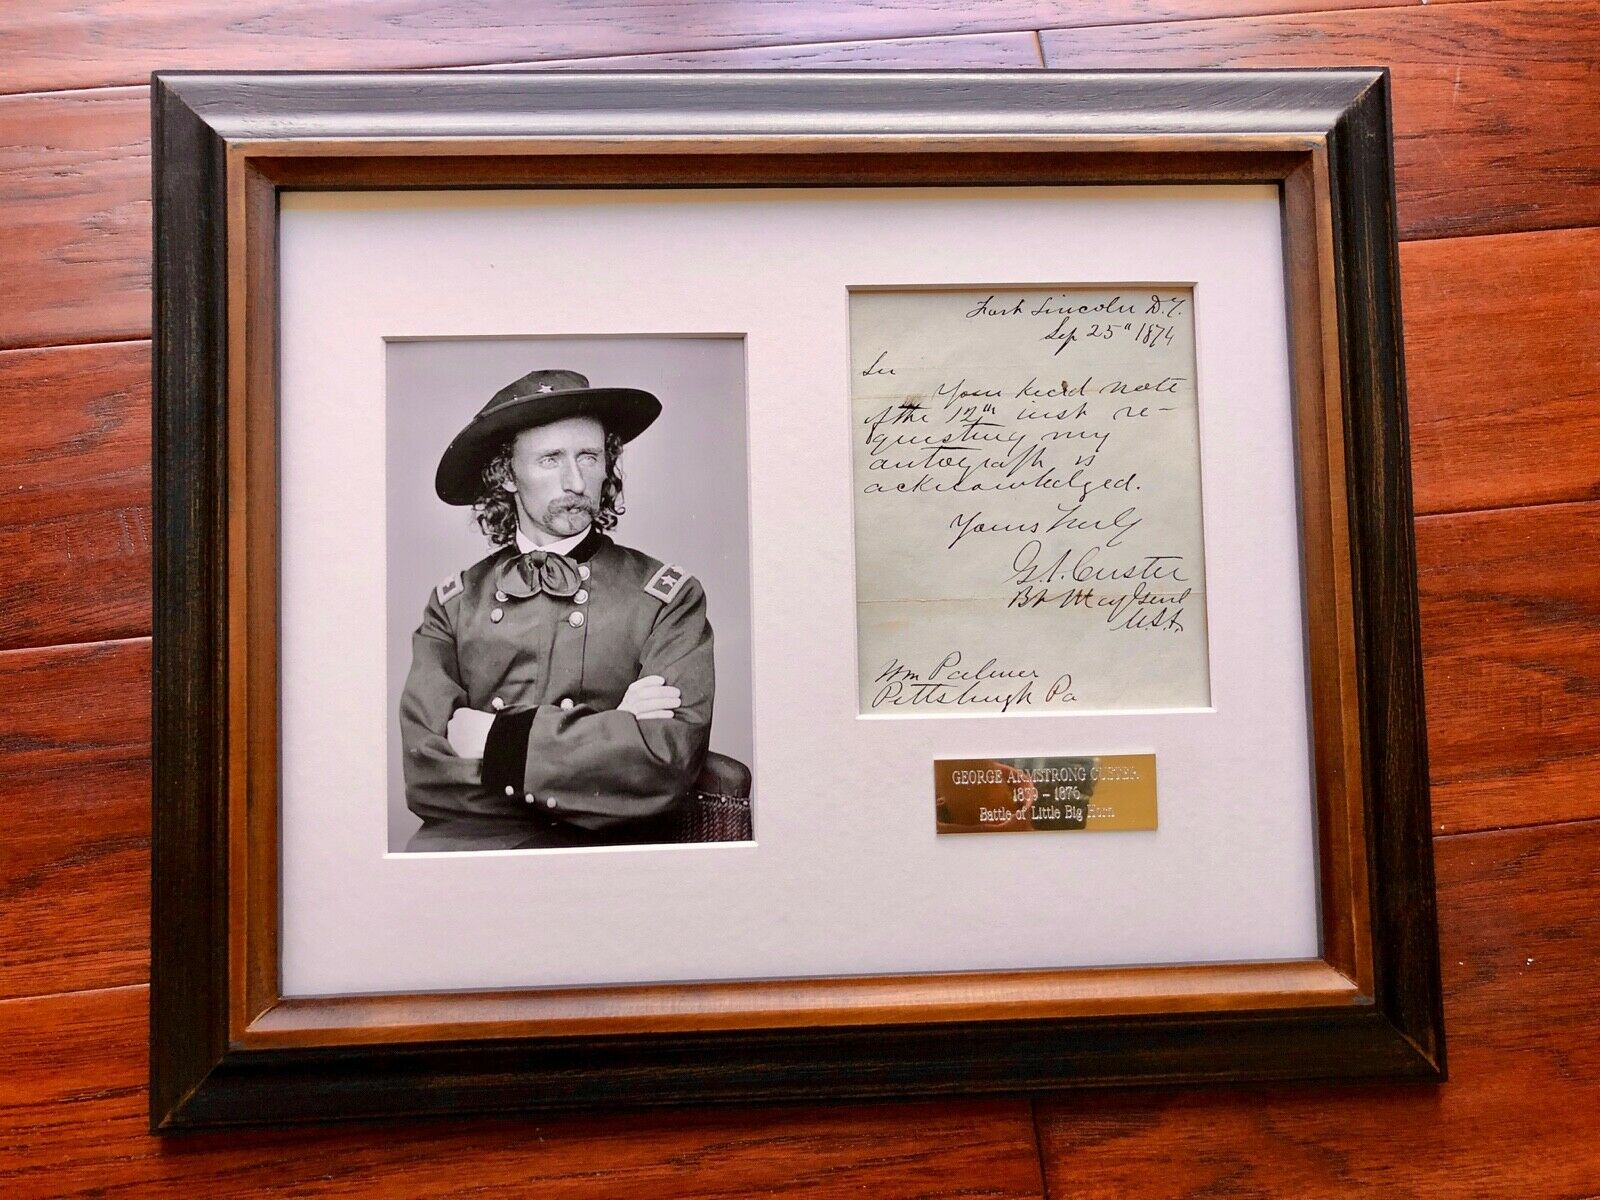 Fort Lincoln D.T.
Sep 25" 1874
Sir
Your kind note
of the 12th inst re-
questing my
autograph is
acknowledged.
Yours Truly
G.A. Custer
Bt Maj Genl
U.S.A.
Wm Palmer
Pittsburgh Pa
GEORGE ARMSTRONG CUSTER
1839 - 1876
Battle of Little Big Horn